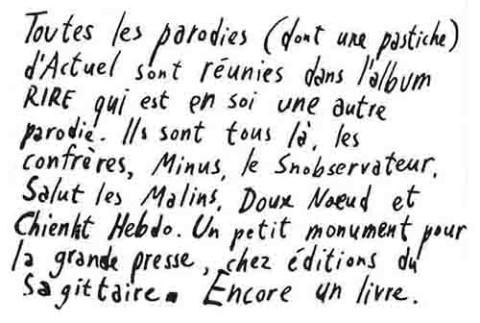 Toutes les parodies (dont une pastiche)
d'Actuel sont réunies dans l'album
RIRE qui est en soi une autre
parodie. Ils sont tous là, les
confrères, Minus, le Snobservateur,
Salut les Malins, Doux Nœud et
Chienkt Hebdo. Un petit monument pour
la grande presse, chez éditions du
Sagittaire. Encore un livre.